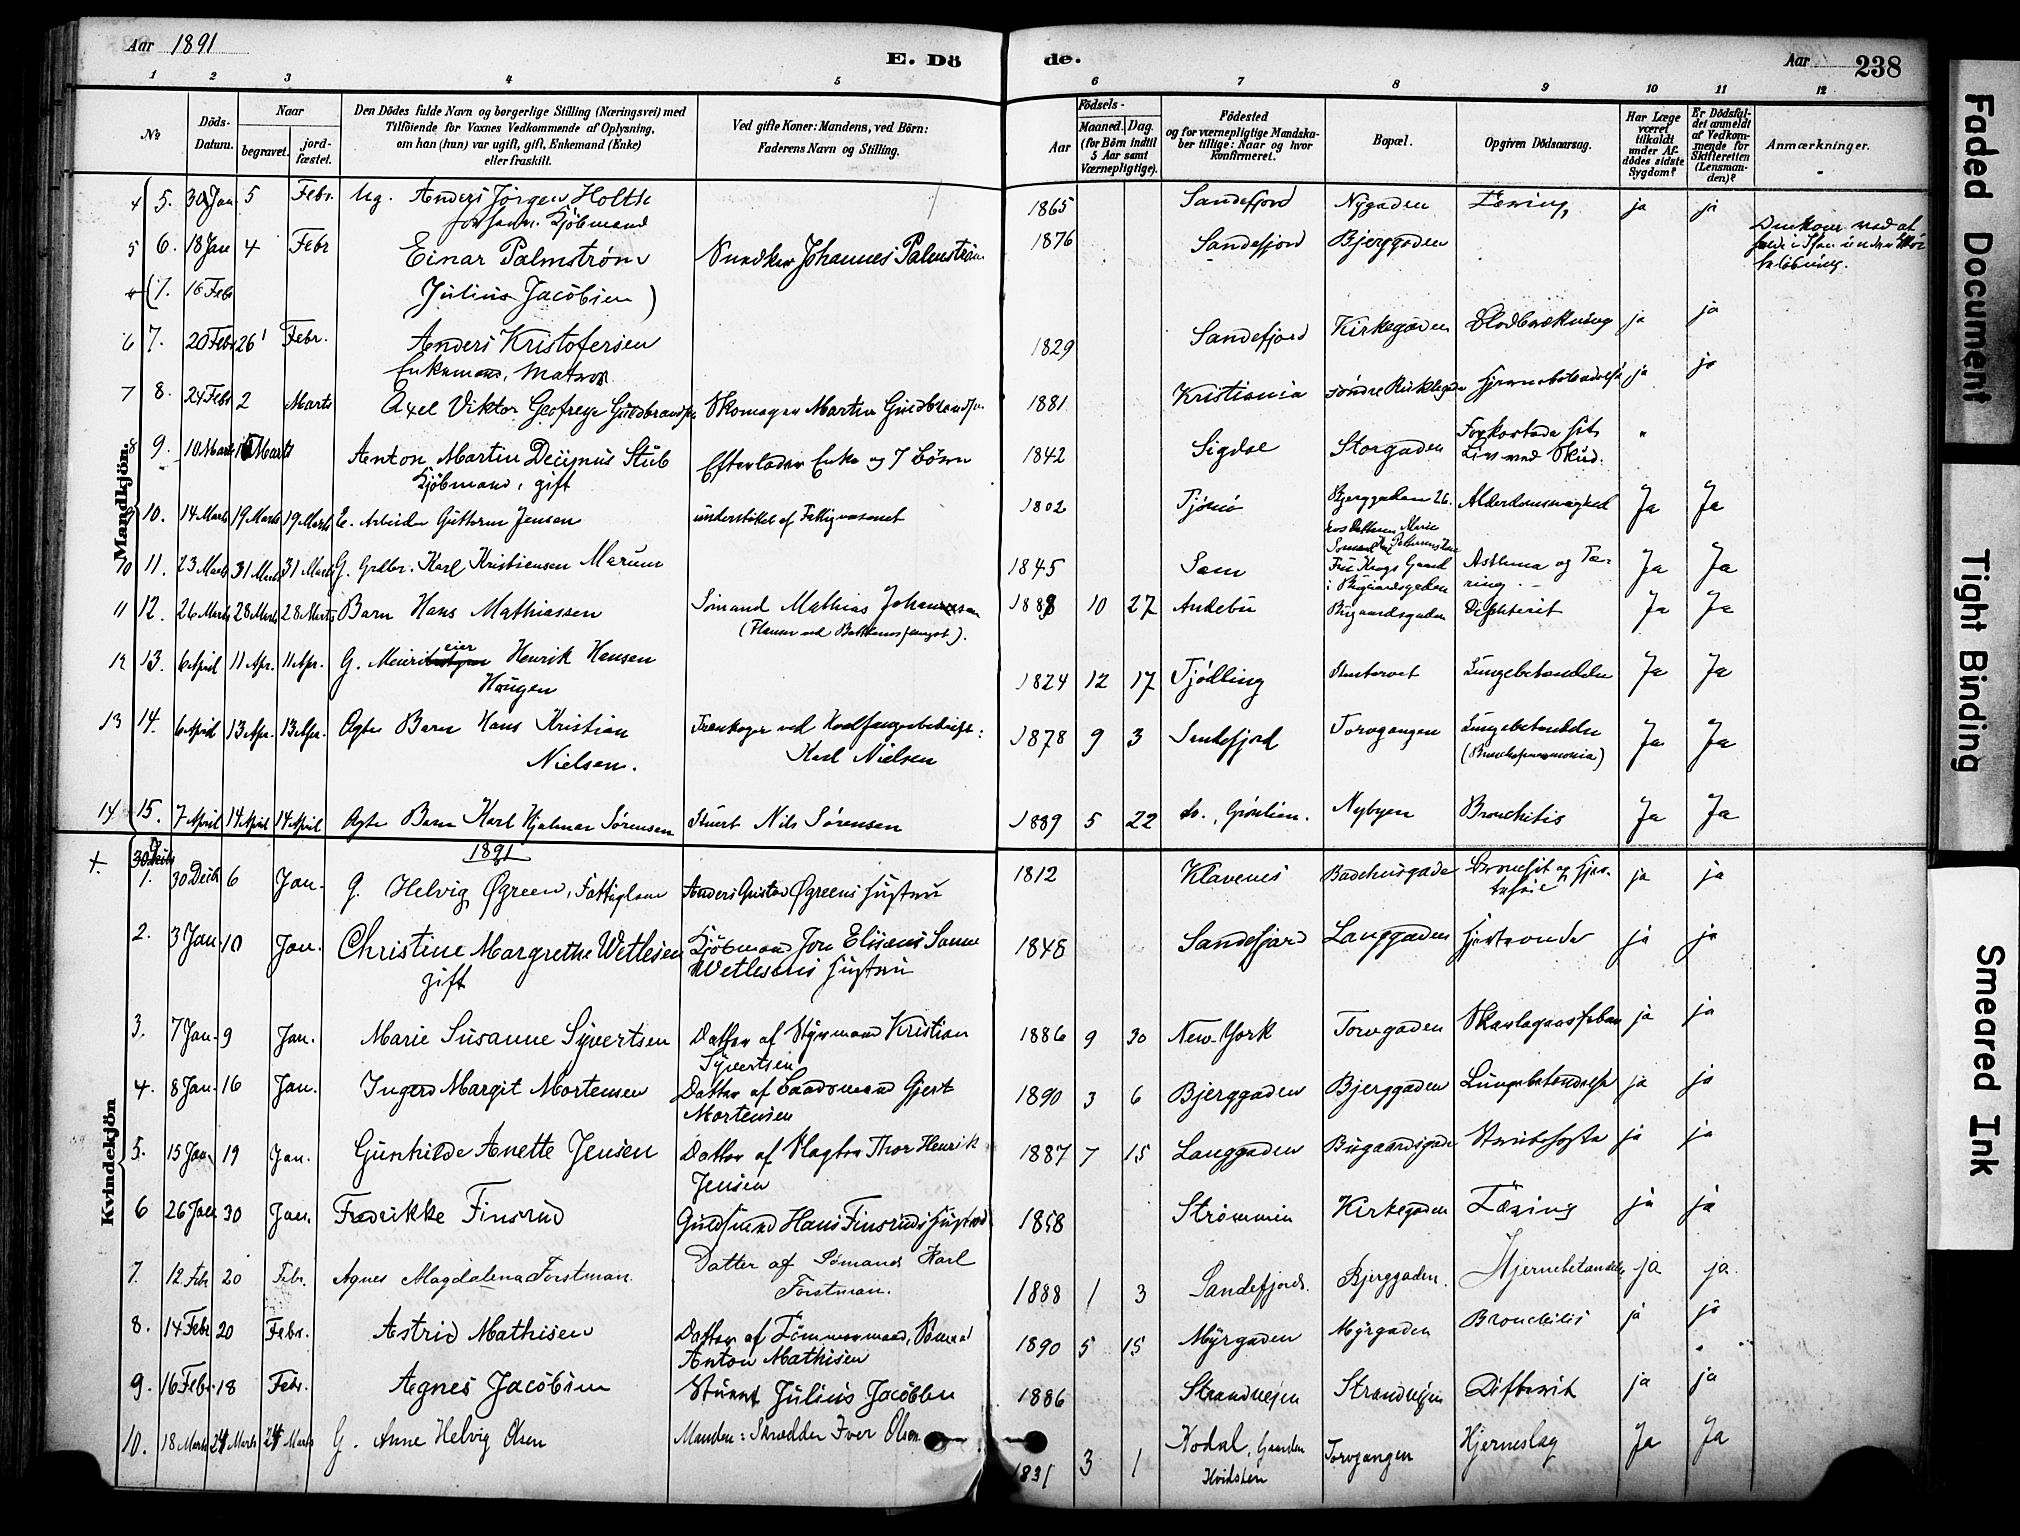 Aar 1891
E. Dö
de.
Aar
238
1 2 3 4 5 6 7 8 9 10 11 12
No
Döds-Datum.
Naar
begravet.
jord-fæstet.
Den Dödes fulde Navn og borgerlige Stilling (Næringsvei) med
Tilföiende for Voxnes Vedkommende af Oplysning,
om han (hun) var ugift, gift, Enkemand (Enke)
eller fraskilt.
Ved gifte Koner: Mandens, ved Börn:
Faderens Navn og Stilling.
Födsels-
Aar
Maaned. Dag.
(for Börn indtil
5 Aar samt
Værnepligtige).
Födested
og for værnepligtige Mandska-
ber tillige: Naar og hvor
konfirmeret.
Bopæl.
Opgiven Dödsaarsag.
Har Læge
været
tilkaldt
under Af-
dödes sidste
Sygdom?
Er Dödsfal-
det anmeldt
af Vedkom-
mende for
Skifteretten
(Lensman-
den)?
Anmærkninger.
Mandkjön.
4 5. 30 Jan 5 Febr. Ug. Anders Jörgen Holth 1865 Sandefjord Nygaden Tæring ja ja
Kjøbmand
5 6. 18 Jan 4 Febr Einar Palmstrøm Johannes Palmstrøm 1876 Sandefjord Bjerggaden
(7. 16 Feb Julius Jacobsen)
6 7. 20 Feb 26 Febr. Anders Kristofersen 1829 Sandefjord Kirkegaden Blodbrækning ja ja
Enkemand, Matros
7 8. 24 Febr 2 Marts Axel Viktor Guldbrandsen Skomager Martin Guldbrandsen 1881 Kristiania ja ja
8 9. 10 Marts Marts Anton Martin Stub Efterlader Enke og 7 Börn 1842 Sigdal Storgaden Liv ved Skud.
Kjøbmand, gift
10. 14 Marts 19 Marts 19 Marts E. Arbeider Guttorm Jensen understöttet af Fattigvæsenet 1802 Tjømø Bjerggaden 26. Alderdomssvaghed Ja Ja
10 11. 23 Marts 31 Marts 31 Marts G. Karl Kristiansen Marum 1845 Sem Asthma og Tæ-
ring. Ja Ja
11 12. 26 Marts 28 Marts 28 Marts Barn Hans Mathiassen Sömand Mathias Johannessen 10 27 Andebu Bugaardsgaden Difterit Ja Ja
12 13. 6 April 11 Apr. 11 Apr. G. eier Henrik Hansen 1824 12 17 Tjødling Lungebetændelse Ja Ja
Haugen
13 14. 6 April 13 Apr. 13 Apr. Ægte Barn Hans Kristian Trankoger ved 1878 9 3 Sandefjord Torvgangen Lungebetændelse Ja Ja
Nielsen. Karl Nielsen (Bronchopneumonia)
14 15. 7 April 14 April 14 April Ægte Barn Karl Hjalmar Sørensen Stuert Nils Sørensen 1889 5 22 Nybyen Bronchitis Ja Ja
Kvindekjön
1891
1. 30 Decb 6 Jan. G. Helvig Øgreen, Fattiglem Anders Gustav Øgreens Hustru 1812 Klavenes Badehusgade ja ja
2. 3 Jan. 10 Jan. Christine Margrethe Wetlesen Kjøbmand 1848 Sandefjord Langgaden Hjerteonde ja ja
gift Wetlesens Hustru
3. 7 Jan. 9 Jan. Marie Susanne Syvertsen Datter af Styrmand Kristian 1886 9 30 New-York Torvgaden Skarlagensfeber ja ja
Syvertsen
4. 8 Jan. 16 Jan. Ingerd Margit Mortensen Datter af Baadsmand Gjert 1890 3 6 Bjerggaden Bjerggaden Lungebetændelse ja ja
Mortensen
5. 15 Jan. 19 Jan. Gunhilde Anette Jensen Datter af Slagter Thor Henrik 1887 7 15 Langgaden Bugaardsgade Strubehoste ja ja
Jensen
6 26 Jan 30 Jan. Fredrikke Finsrud Guldsmed Hans Finsruds Hustru 1858 Strømmen Kirkegaden Tæring ja ja
7. 12 Febr 20 Febr. Agnes Magdalena Forstman. Datter af Sømand Karl 1888 1 3 Sandefjord. Bjerggaden. Hjernebetændelse ja ja.
Forstman.
8. 14 Febr 20 Febr. Astrid Mathisen Datter af Tømmermand, Sømand 1890 5 15 Myrgaden Myrgaden Bronchitis ja ja
Anton Mathisen
9. 16 Febr. 18 Febr. Agnes Jacobsen Stuert Julius Jacobsen 1886 Strandveien Strandveien Difterit ja ja
10. 18 Marts 24 Marts 24 Marts G. Anne Helvig Olsen Manden: Skrædder Iver Olsen 1831 3 1 Kodal, Gaarden Torvgangen Hjerneslag Ja Ja
Hvidsten
Faded Document
Tight Binding
Smeared Ink